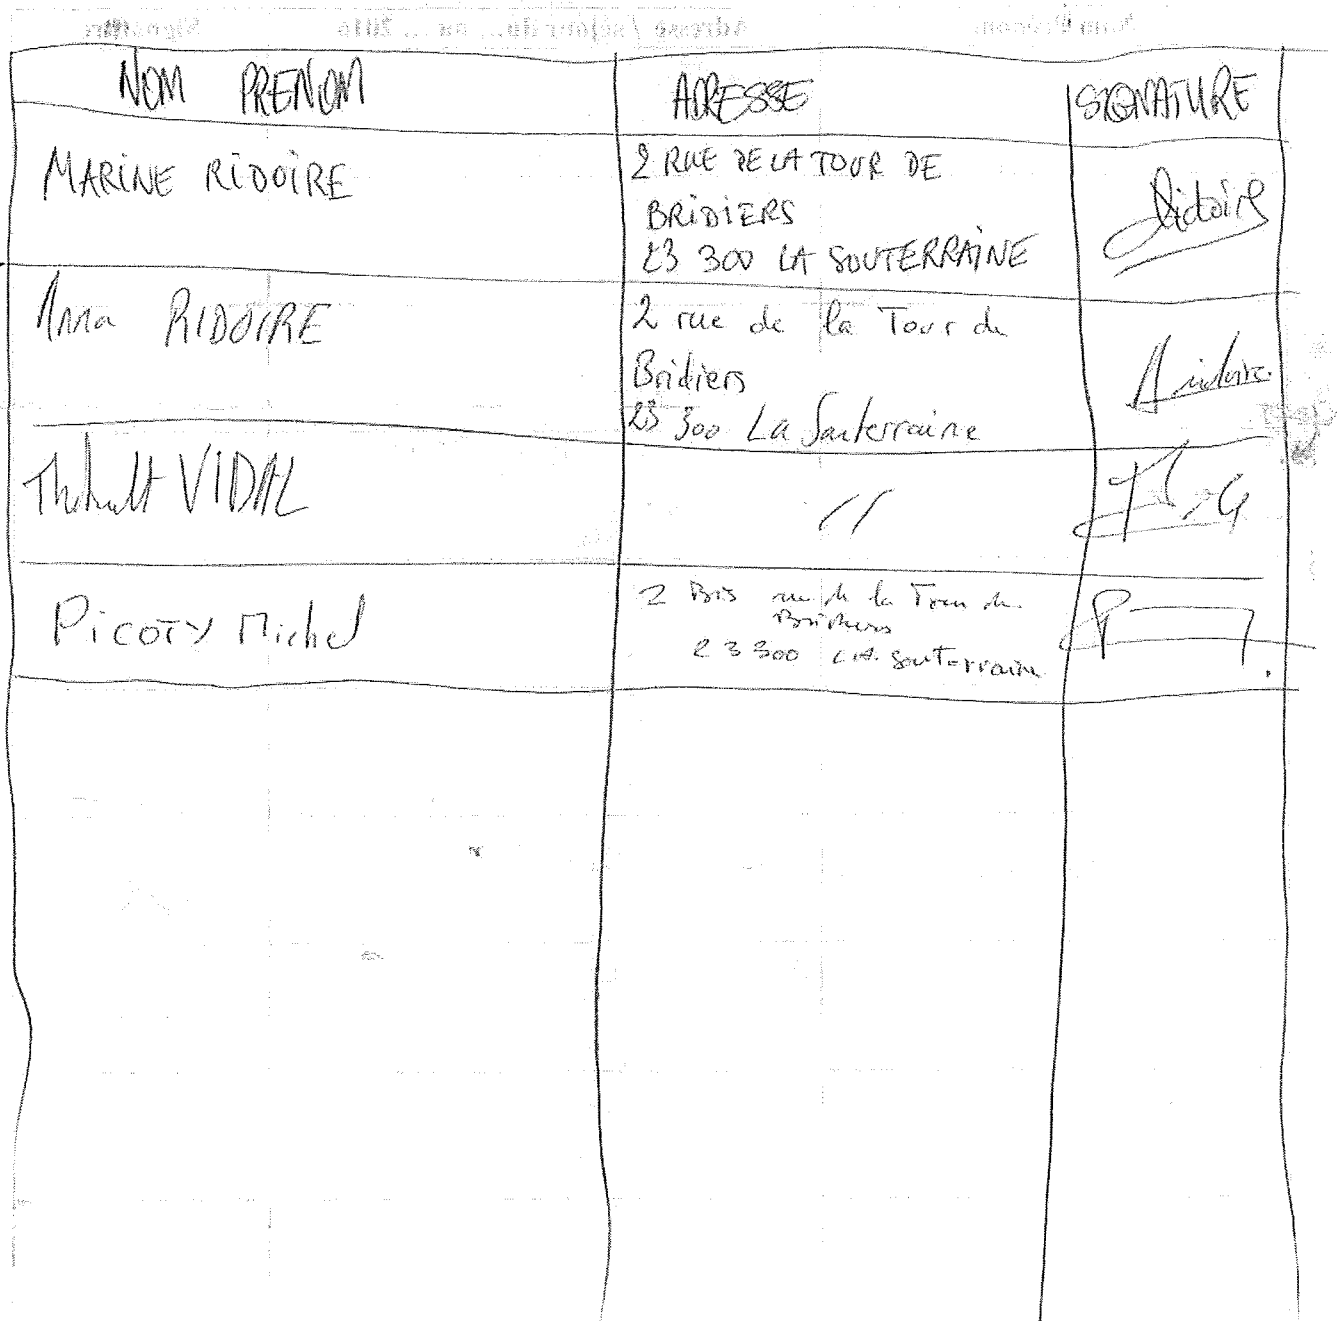 NOM PRENOM ADRESSE SIGNATURE
MARINE RIDOIRE
2 RUE DE LA TOUR DE
BRIDIERS
23 300 LA SOUTERRAINE
Ridoire
Anna RIDOIRE
2 rue de la Tour de
Bridiers
23 300 La Souterraine
Thibault VIDAL
//
PICOTY Michel
2 Bis rue de la Tour de
Bridiers
23300 LA Souterraine